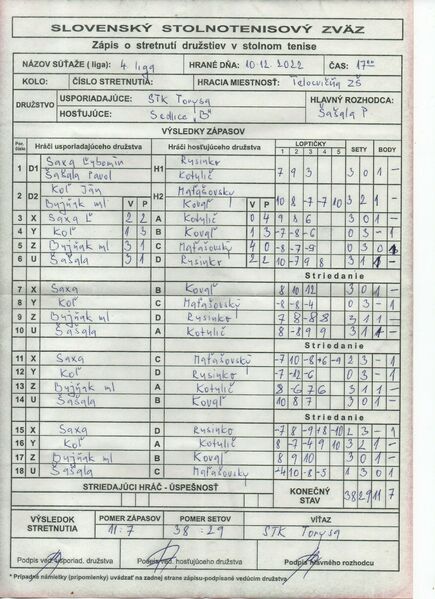 SLOVENSKÝ STOLNOTENISOVÝ ZVÄZ
Zápis o stretnutí družstiev v stolnom tenise
NÁZOV SÚŤAŽE ( liga): 4 liga HRANÉ DŇA: 10.12.2022 ČAS: 17
KOLO: ČÍSLO STRETNUTIA: HRACIA MIESTNOSŤ: Telocvičňa ZŠ
DRUŽSTVO USPORIADAJÚCE: STK Torysa HLAVNÝ ROZHODCA:
HOSŤUJÚCE: Sedlice "B" Šašala P
VÝSLEDKY ZÁPASOV
Por. číslo Hráči usporiadajúceho družstva Hráči hosťujúceho družstva LOPTIČKY SETY BODY
1 2 3 4 5
1 D1 Saxa Ľubomír H1 Rusinko 7 9 3 3 0 1 -
Šašala Pavol Kotulič
2 D2 Koľ Ján H2 Maťašovský 10 8 -7 -7 10 3 2 1 -
Byjňak ml V P Kovaľ V P
3 X Saxa Ľ 2 2 A Kotulič 0 4 9 8 6 3 0 1 -
4 Y Koľ 1 3 B Kovaľ 1 3 -7 -8 -6 0 3 - 1
5 Z Byjňak ml 3 1 C Maťašovský 4 0 -8 -7 -9 0 3 0 1
6 U Šašala 3 1 D Rusinko 2 2 10 -7 9 8 3 1 1 -
Striedanie
7 X Saxa B Kovaľ 8 10 12 3 0 1 -
8 Y Koľ C Maťašovský -8 -8 -4 0 3 - 1
9 Z Byjňak ml D Rusinko 7 8 -8 8 3 1 1 -
10 U Šašala A Kotulič 8 -8 9 9 3 1 1 -
Striedanie
11 X Saxa C Maťašovský -7 10 -8 +6 -9 2 3 - 1
12 Y Koľ D Rusinko -7 -12 -6 0 3 - 1
13 Z Byjňak ml A Kotulič 8 -6 7 6 3 1 1 -
14 U Šašala B Kovaľ 10 8 7 3 0 1 -
Striedanie
15 X Saxa D Rusinko -7 8 -9 +8 -10 2 3 - 1
16 Y Koľ A Kotulič 8 -7 -4 9 10 3 2 1 -
17 Z Byjňak ml B Kovaľ 8 9 10 3 0 1 -
18 U Šašala C Maťašovský -4 10 -8 -5 1 3 - 1
STRIEDAJÚCI HRÁČ - ÚSPEŠNOSŤ KONEČNÝ STAV 38 29 11 7
VÝSLEDOK STRETNUTIA POMER ZÁPASOV POMER SETOV VÍŤAZ
11:7 38:29 STK Torysa
Podpis ved. usporiad. družstva Podpis ved. hosťujúceho družstva Podpis hlavného rozhodcu
* Prípadné námietky (pripomienky) uvádzať na zadnej strane zápisu-podpísané vedúcim družstva